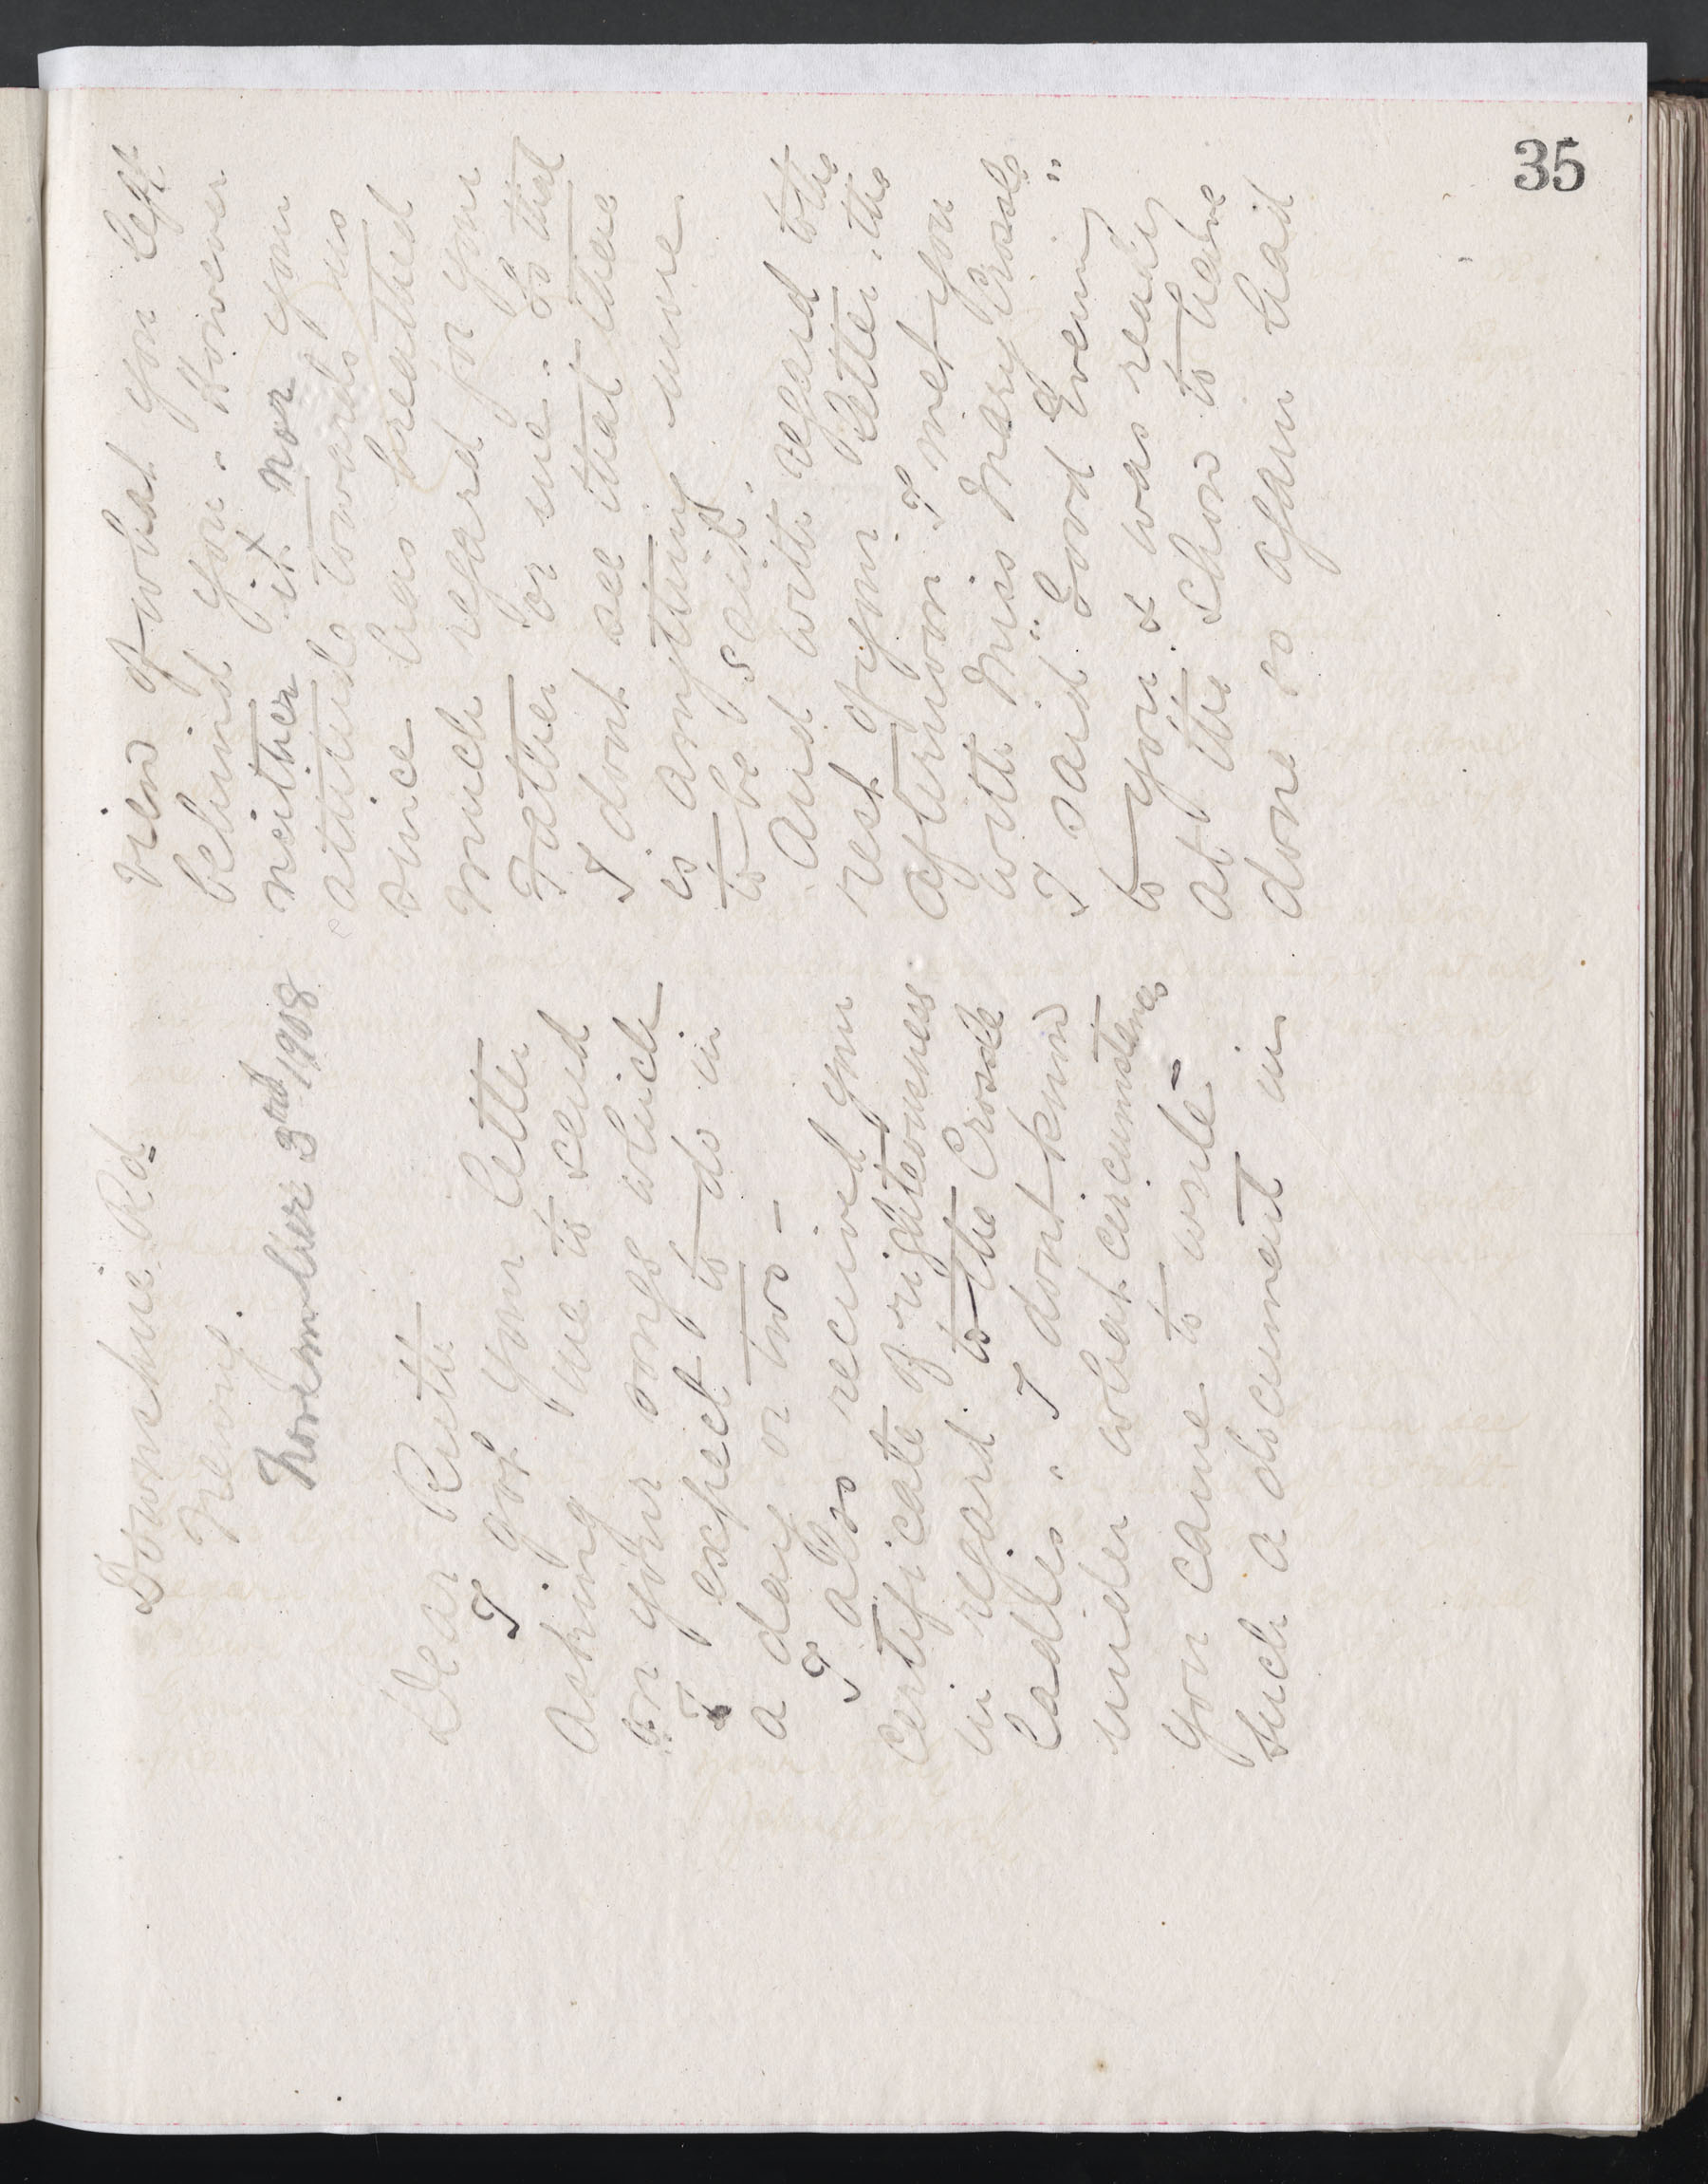 35
Downshire Rd.
Newry.
November 3rd 1908
Dear Ruth
I got your letter
asking me to send
on your songs which
I expect to do in
a day or two -
I also received your
certificate of righteousness
in regard to the Crosslé
ladies. I dont know
under what circumstances
you came to write -
such a document in
view of what you left
behind you. However
neither it nor your
attitude towards us
since has breathed
much regard for your
Father or me. So that
I dont see that there
is anything more
to be said.
And with regard to the
rest of your letter. the
afternoon I met you
with Miss Mary Crosslé
I said "Good Evening"
to you & was ready
at the show to have
done so again had